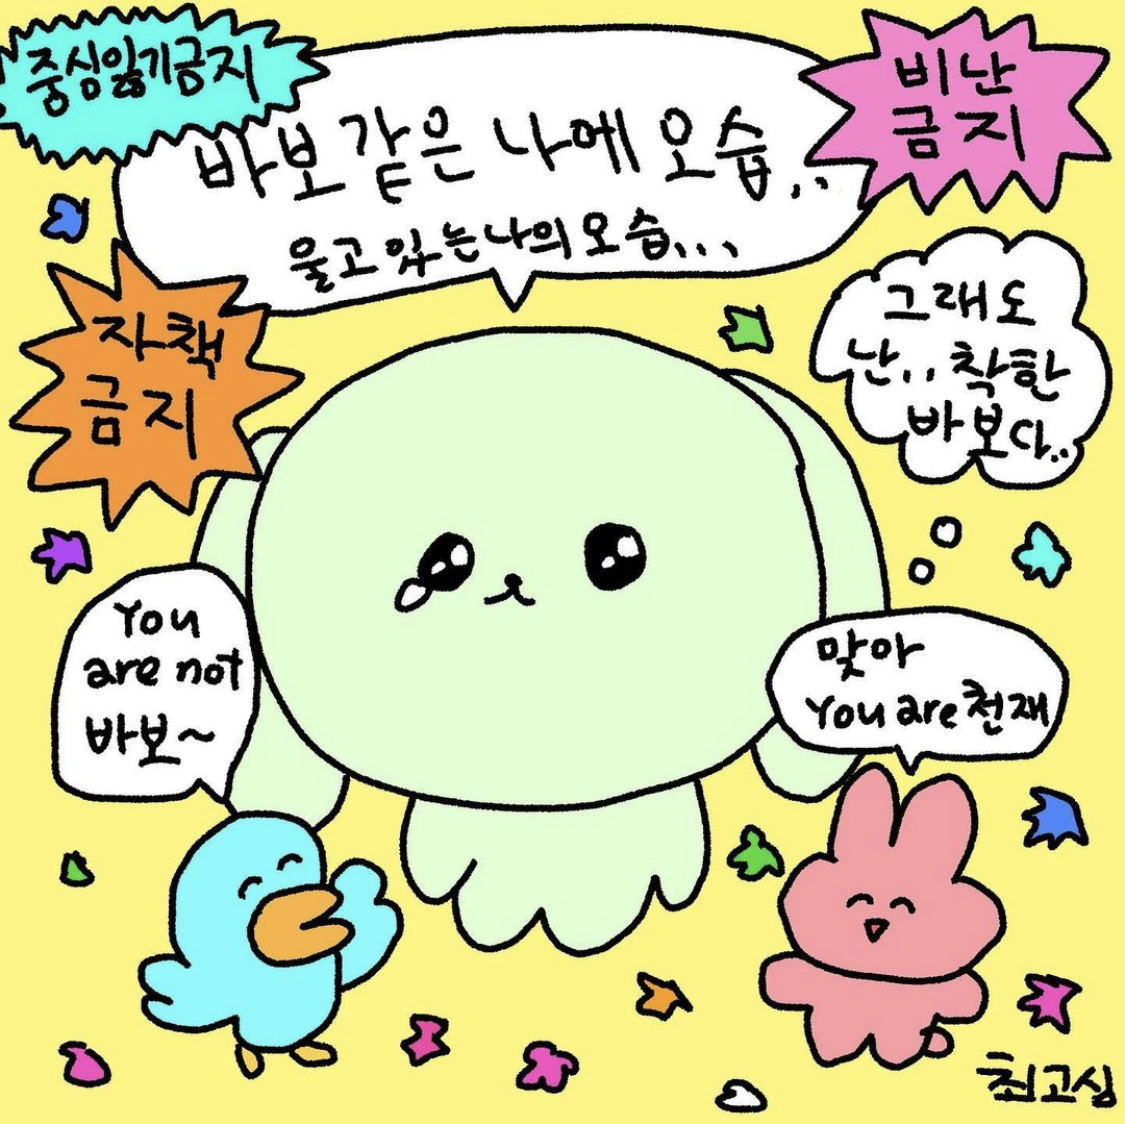 중심잃기금지
비난
금지
바보 같은 나에 오습..
울고 있는 나의 오습...
자책
금지
그래도
난.. 착한
바보다..
You
are not
바보~
맞아
You are 천재
최고심